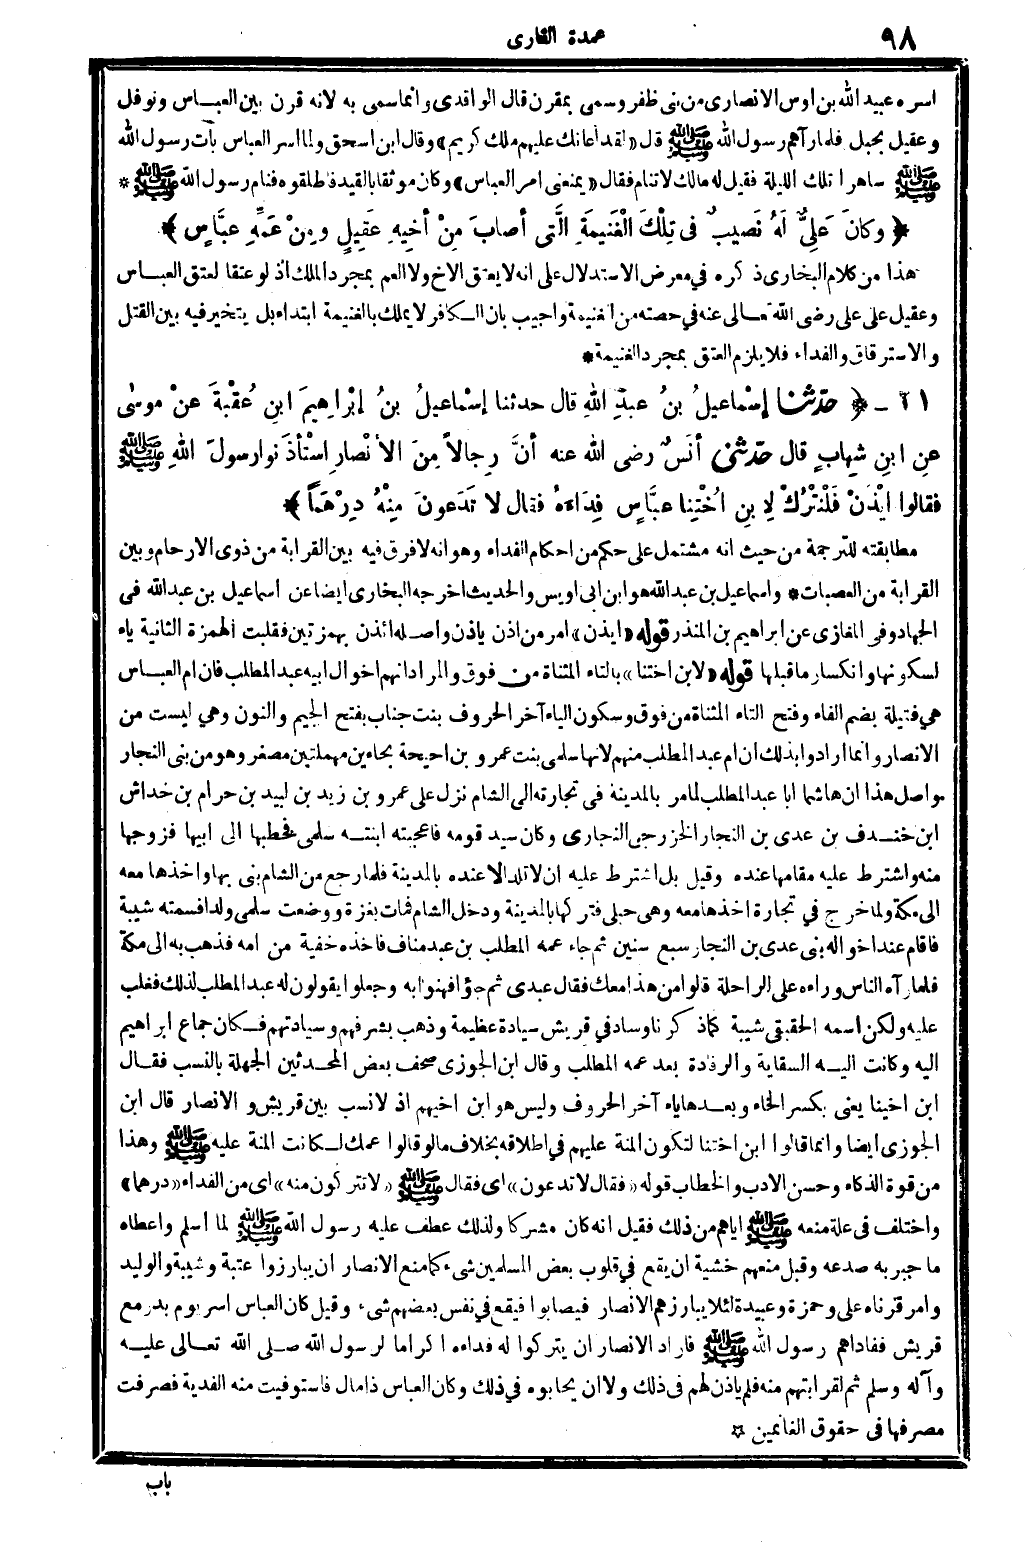 ٩٨
عمدة القارى
اسره عبيد الله بن اوس الانصارى من بنى ظفر وسمى بمقرن قال الواقدى وانما سمى به لانه قرن بين العباس ونوفل
وعقيل بحبل فلما رآهم رسول الله ﷺ قل «لقد أعانك عليهم ملك كريم» وقال ابن اسحق ولما اسر العباس بات رسول الله
ﷺ ساهرا تلك الليلة فقيل له مالك لاتنام فقال «يمنعنى امر العباس» وكان موثقا بالقيد فاطلقوه فنام رسول الله ﷺ *
﴿ وكانَ عَلِيٌّ لَهُ نَصِيبٌ فى تِلْكَ الْغَنِيمَةِ الَّتى أصابَ مِنْ أخِيهِ عَقِيلٍ ومِنْ عَمِّهِ عبَّاسٍ ﴾
هذا من كلام البخارى ذكره في معرض الاستدلال على انه لا يعتق الاخ ولا العم بمجرد الملك اذ لو عتقا لعتق العباس
وعقيل على على رضى الله تعالى عنه في حصته من الغنيمة واجيب بان الكافر لا يملك بالغنيمة ابتداء بل يتخير فيه بين القتل
والاسترقاق والفداء فلا يلزم العتق بمجرد الغنيمة *
٢١ ـ ﴿ حدّثنا إسْماعيلُ بنُ عبدِ اللهِ قال حدثنا إسْماعيلُ بنُ إبْراهِيمَ ابنِ عُقْبةَ عنْ موسٰى
عنِ ابنِ شِهابٍ قال حدّثنى أنَسٌ رضى الله عنه أنَّ رِجالاً مِنَ الأنْصارِ اسْتأذَنوا رسولَ اللهِ ﷺ
فقالوا ايْذَنْ فَلْنَتْرُكْ لِابنِ اُخْتِنا عبَّاسٍ فِدَاءَهُ فقال لا تَدَعونَ مِنْهُ دِرْهَماً ﴾
مطابقته للترجمة من حيث انه مشتمل على حكم من احكام الفداء وهو انه لا فرق فيه بين القرابة من ذوى الارحام وبين
القرابة من العصبات * واسماعيل بن عبد الله هو ابن ابى اويس والحديث اخرجه البخارى ايضا عن اسماعيل بن عبد الله فى
الجهاد وفى المغازى عن ابراهيم بن المنذر قوله «ايذن» امر من اذن ياذن واصله ائذن بهمزتين فقلبت الهمزة الثانية ياء
لسكونها وانكسار ما قبلها قوله «لابن اختنا» بالتاء المثناة من فوق والمراد انهم اخوال ابيه عبد المطلب فان ام العباس
هي فتيلة بضم الفاء وفتح التاء المثناة من فوق وسكون الياء آخر الحروف بنت جناب بفتح الجيم والنون وهي ليست من
الانصار وانما ارادوا بذلك ان ام عبد المطلب منهم لانها سلمى بنت عمرو بن احيحة بحاءين مهملتين مصغر وهو من بنى النجار
واصل هذا ان هاشما ابا عبد المطلب لما مر بالمدينة فى تجارته الى الشام نزل على عمرو بن زيد بن لبيد بن حرام بن خداش
ابن خندف بن عدى بن النجار الخزرجى النجارى وكان سيد قومه فاعجبته ابنته سلمى فخطبها الى ابيها فزوجها
منه واشترط عليه مقامها عنده وقيل بل اشترط عليه ان لا تلد الا عنده بالمدينة فلما رجع من الشام بنى بها واخذها معه
الى مكة ولما خرج في تجارة اخذها معه وهى حبلى فتركها بالمدينة ودخل الشام فمات بغزة ووضعت سلمى ولدا فسمته شيبة
فاقام عند اخواله بنى عدى بن النجار سبع سنين ثم جاء عمه المطلب بن عبد مناف فاخذه خفية من امه فذهب به الى مكة
فلما رآه الناس وراءه على الراحلة قالوا من هذا معك فقال عبدى ثم جاؤا فهنوا به وجعلوا يقولون له عبد المطلب لذلك فغلب
عليه ولكن اسمه الحقيقى شيبة كما ذكرنا وساد في قريش سيادة عظيمة وذهب بشرفهم وسيادتهم فكان جماع ابراهيم
اليه وكانت اليه السقاية والرفادة بعد عمه المطلب وقال ابن الجوزى صحف بعض المحدثين الجهلة بالنسب فقال
ابن اخينا يعنى بكسر الخاء وبعدها ياء آخر الحروف وليس هو ابن اخيهم اذ لا نسب بين قريش والانصار قال ابن
الجوزى ايضا وانما قالوا ابن اختنا لتكون المنة عليهم في اطلاقه بخلاف ما لو قالوا عمك لكانت المنة عليه ﷺ وهذا
من قوة الذكاء وحسن الادب والخطاب قوله «فقال لا تدعون» اى فقال ﷺ «لا تتركون منه» اى من الفداء «درهما»
واختلف فى علة منعه ﷺ اياهم من ذلك فقيل انه كان مشركا ولذلك عطف عليه رسول الله ﷺ لما أسلم واعطاه
ما جبر به صدعه وقيل منعهم خشية ان يقع في قلوب بعض المسلمين شىء كما منع الانصار ان يبارزوا عتبة وشيبة والوليد
وامر قرناه على وحمزة وعبيدة لئلا يبارزهم الانصار فيصابوا فيقع في نفس بعضهم شىء وقيل كان العباس اسر يوم بدر مع
قريش ففاداهم رسول الله ﷺ فاراد الانصار ان يتركوا له فداءه اكراما لرسول الله صلى الله تعالى عليه
وآله وسلم ثم لقرابتهم منه فلم ياذن لهم فى ذلك ولا ان يحابوه في ذلك وكان العباس ذا مال فاستوفيت منه الفدية فصرفت
مصرفها فى حقوق الغانمين *
باب